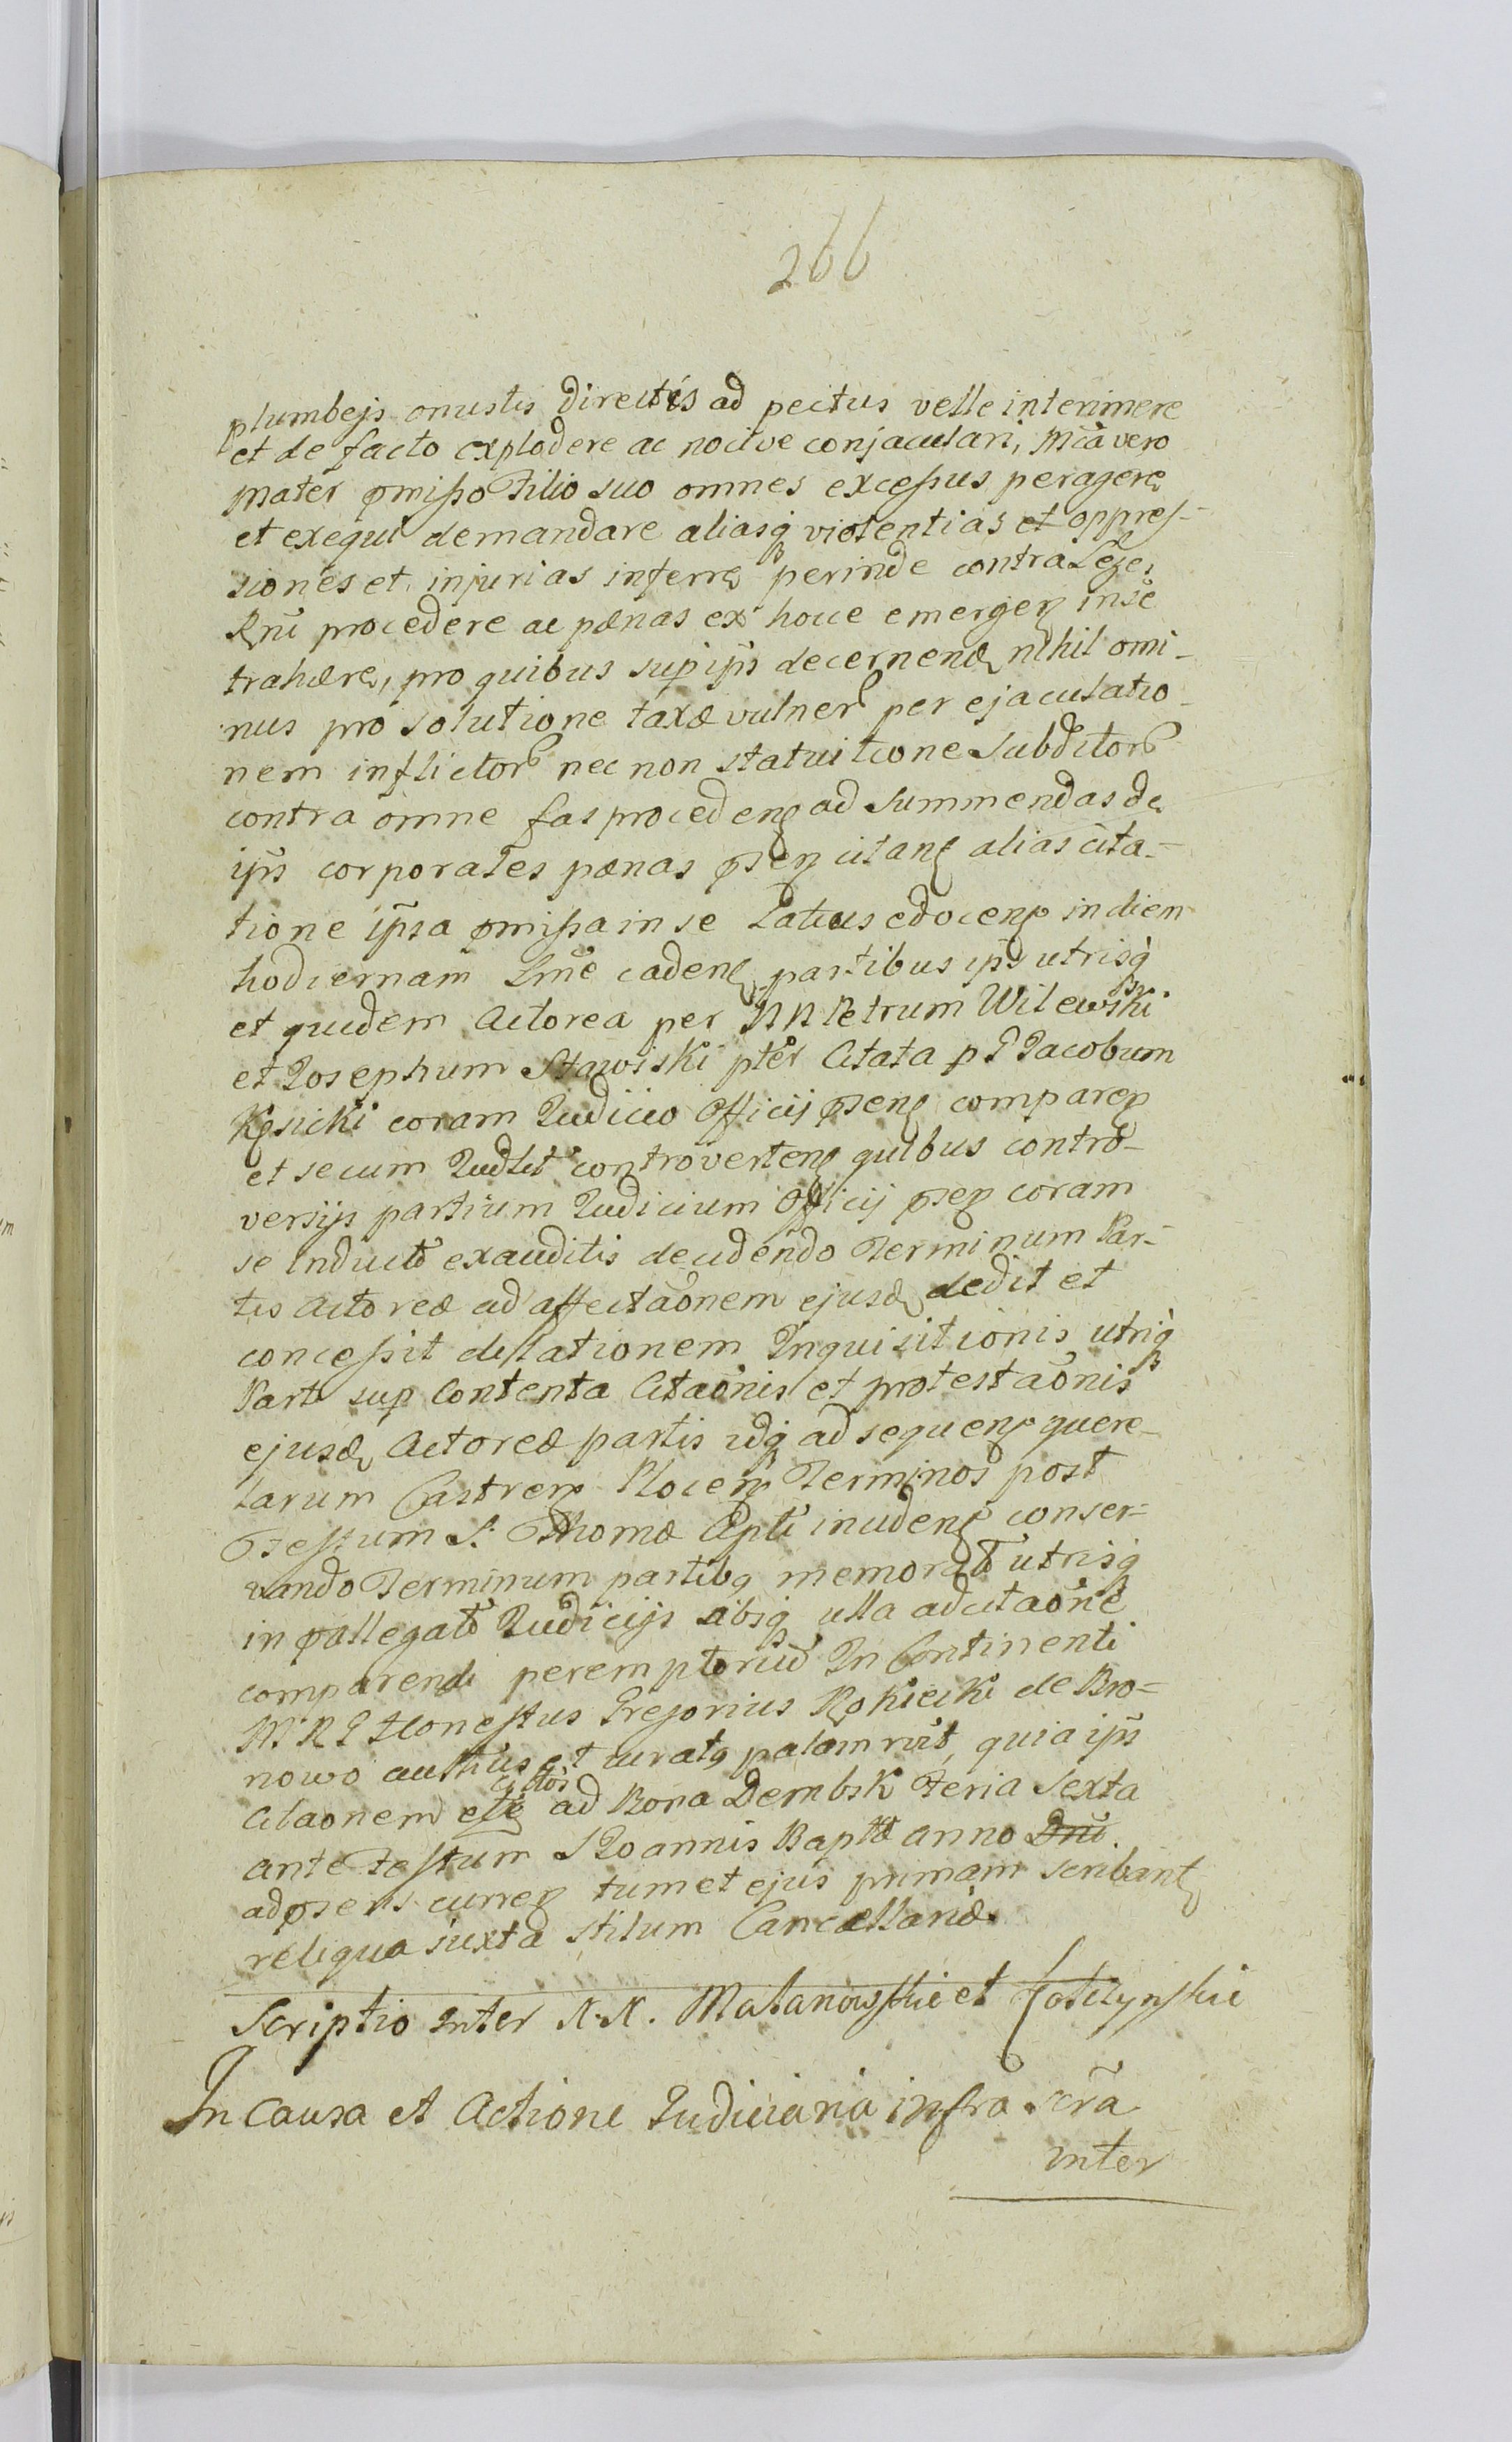 266
plumbejs onustis directis ad pectus velle interimere
et de facto explodere ac nocive conjaculari, Mcã vero
Mater pmisso Filio suo omnes excessus peragere
et exequi demandare aliasq violentias et oppres-
siones et injurias inferre perinde contra Leges
Rni procedere ac pænas ex hocce emergen in se
trahere, pro quibus sup ipis decernend nihil omi-
nus pro solutione taxæ vulner per ejaculatio-
nem inflictor nec non statuitione Subditor
contra omne fas proceden ad summendas de
ipis corporales pænas psen citan alias cita-
tione ipsa pmissa in se Latius edocen in diem
hodiernam Lme caden partibus ipis utrisq
et quidem Actorea per NN Petrum Wilewski
et Josephum Stawiski pter Citata p G Jacobum
Kęsicki coram Judicio Officij psen comparen
et secum Judlit controverten quibus contro-
versijs partium Judicium Officij psen coram
se Induct exauditis decidendo Terminum Par-
tis Actoreæ ad affectaõnem ejusd dedit et
concessit delationem Inquisitionis utriq
Parti sup Contenta Citaõnis et protestaõnis
ejusd Actoreæ partis idq ad sequen quere-
larum Castren Plocen Terminos post
Festum S. Thomæ Apli inciden conser-
vando Terminum partibq memorat utrisq
in pallegat Judicijs absq ulla adcitaõne
comparendi peremptorium In Continenti
M. R G Honestus Gregorius Rokicki de Bro-
nowo authus et juratq palam rvit, quia ipis
Citaonem ad Bona Dembsk Feria Sexta
ante Festum S Joannis Bapttæ anno Dni.
ad psens curren tum et ejus primam scribant
reliqua iuxta stilum Cancellariæ.
Scriptio Inter N.N. Matanowskie et
In Causa et Actione Judiciaria infra scrã
inter